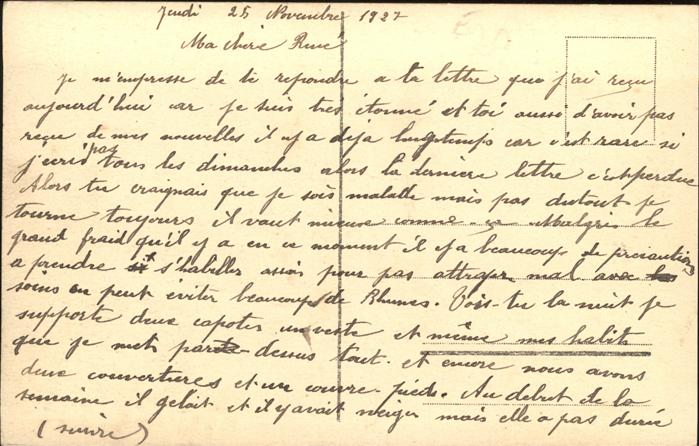 Jeudi 25 Novembre 1927
Ma chère René
Je m'empresse de te repondre a ta lettre que j'ai reçu
aujourd'hui car je suis tres étonné et toi aussi d'avoir pas
reçu de mes nouvelles il y a deja longtemps car c'est rare si
j'ecris pas tous les dimanches alors la derniere lettre c'est perdue
Alors tu craignais que je sois malade mais pas dutout je
tourne toujours il vaut mieux comme ça Malgrés le
grand froid qu'il y a en ce moment il y a beaucoup de precautions
a prendre s'habiller assez pour pas attraper mal avec les
soins on peut éviter beaucoup de Rhumes. Vois-tu la nuit je
supporte deux capotes un veste et même mes habits
que je mets par-dessus tout. et encore nous avons
deux couvertures et un couvre-pieds. Au debut de la
semaine il gelait et il y avait neiger mais elle a pas durée
(suivre)